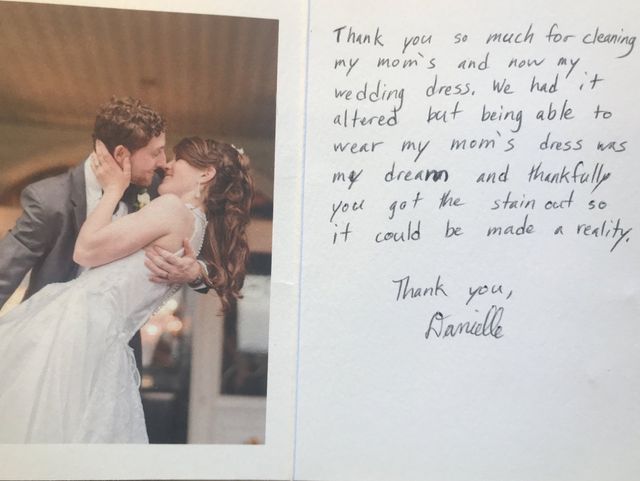 Thank you so much for cleaning
my mom's and now my
wedding dress. We had it
altered but being able to
wear my mom's dress was
my dream and thankfully
you got the stain out so
it could be made a reality.
Thank you,
Danielle